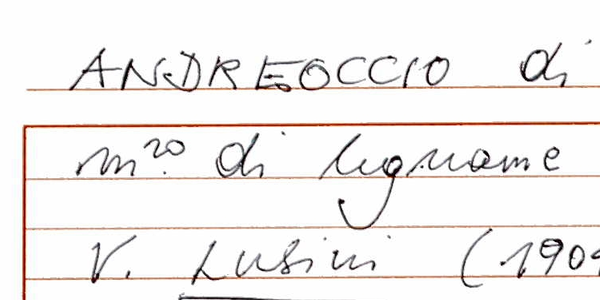 ANDREOCCIO di
m.ro di legname
V. Lusini (190